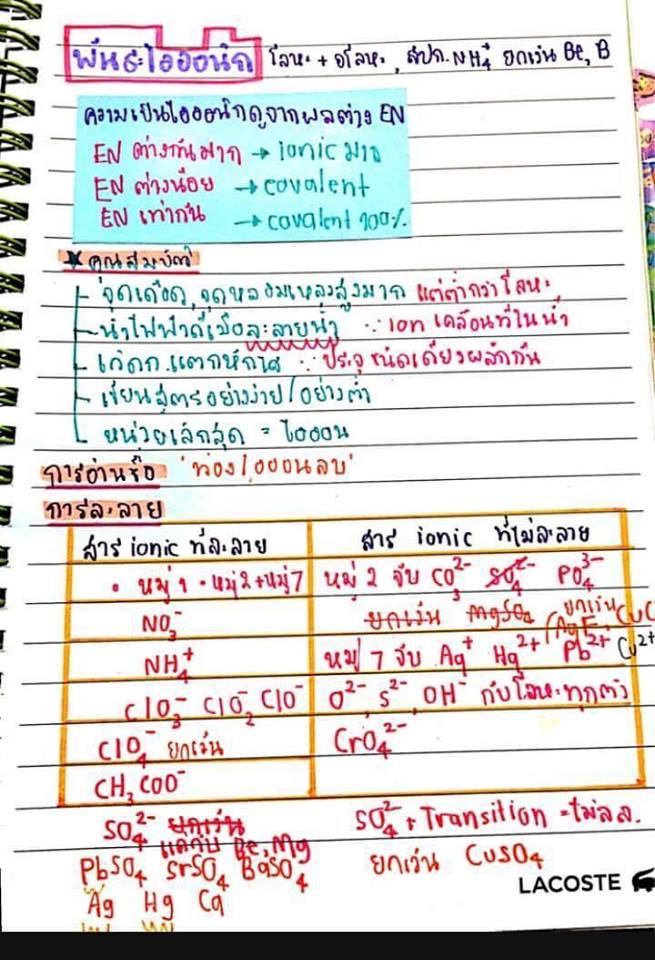 พันธะไอออนิก โลหะ + อโลหะ, สปก. NH₄⁺ ยกเว้น Be, B
ความเป็นไอออนิกดูจากผลต่าง EN
EN ต่างกันมาก → ionic มาก
EN ต่างน้อย → covalent
EN เท่ากัน → covalent 100%
★ คุณสมบัติ
- จุดเดือด, จุดหลอมเหลวสูงมาก แต่ต่ำกว่าโลหะ
- นำไฟฟ้าดีเมื่อละลายน้ำ ∵ ion เคลื่อนที่ในน้ำ
- แตกหักได้ ∵ ประจุชนิดเดียวผลักกัน
- เขียนสูตรอย่างง่าย/อย่างต่ำ
- หน่วยเล็กสุด = ไอออน
การอ่านชื่อ 'ท่องไอออนลบ'
การละลาย
สาร ionic ที่ละลาย
• หมู่ 1 • หมู่ 2 + หมู่ 7
NO₃⁻
NH₄⁺
ClO₃⁻ ClO₂⁻ ClO⁻
ClO₄⁻ ยกเว้น
CH₃COO⁻
สาร ionic ที่ไม่ละลาย
หมู่ 2 จับ CO₃²⁻ SO₄²⁻ PO₄³⁻
ยกเว้น MgSO₄ ยกเว้น
(AgF, CuC
หมู่ 7 จับ Ag⁺ Hg²⁺ Pb²⁺ Cu²⁺
O²⁻, S²⁻, OH⁻ กับโลหะทุกตัว
CrO₄²⁻
SO₄²⁻ ยกเว้น
Be, Mg
PbSO₄ SrSO₄ BaSO₄
Ag Hg Ca
SO₄²⁻ + Transition = ไม่ลล.
ยกเว้น CuSO₄
LACOSTE